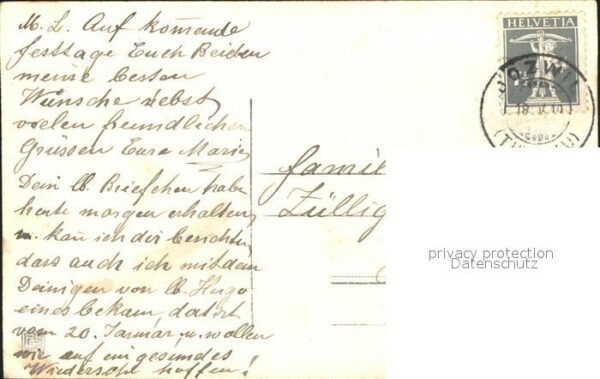 M. L. Auf kommende
festtage Euch Beiden
meine besten
Wünsche nebst
vielen freundlichen
Grüssen Eure Marie
Dein lb. Briefchen habe
heute morgen erhalten
u. kan ich dir berichten
dass auch ich mit dem
Deinigen von lb. Hugo
eines bekam, datirt
vom 20. Januar, u. wollen
wir auf ein gesundes
Wiedersehe hoffen!
Famil
Züllig
HELVETIA
privacy protection
Datenschutz